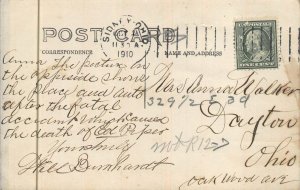 POST CARD
SIDNEY, OHIO
1910
CORRESPONDENCE
NAME AND ADDRESS
Anna The picture on
the opposide shows
the place and auto
after the fatal
accident which caused
the death of Ed Piper
Yours truly
Will Bernhardt
Mrs Anna Walker
329 1/2 E 3d
Dayton
Ohio
Oakwood ave